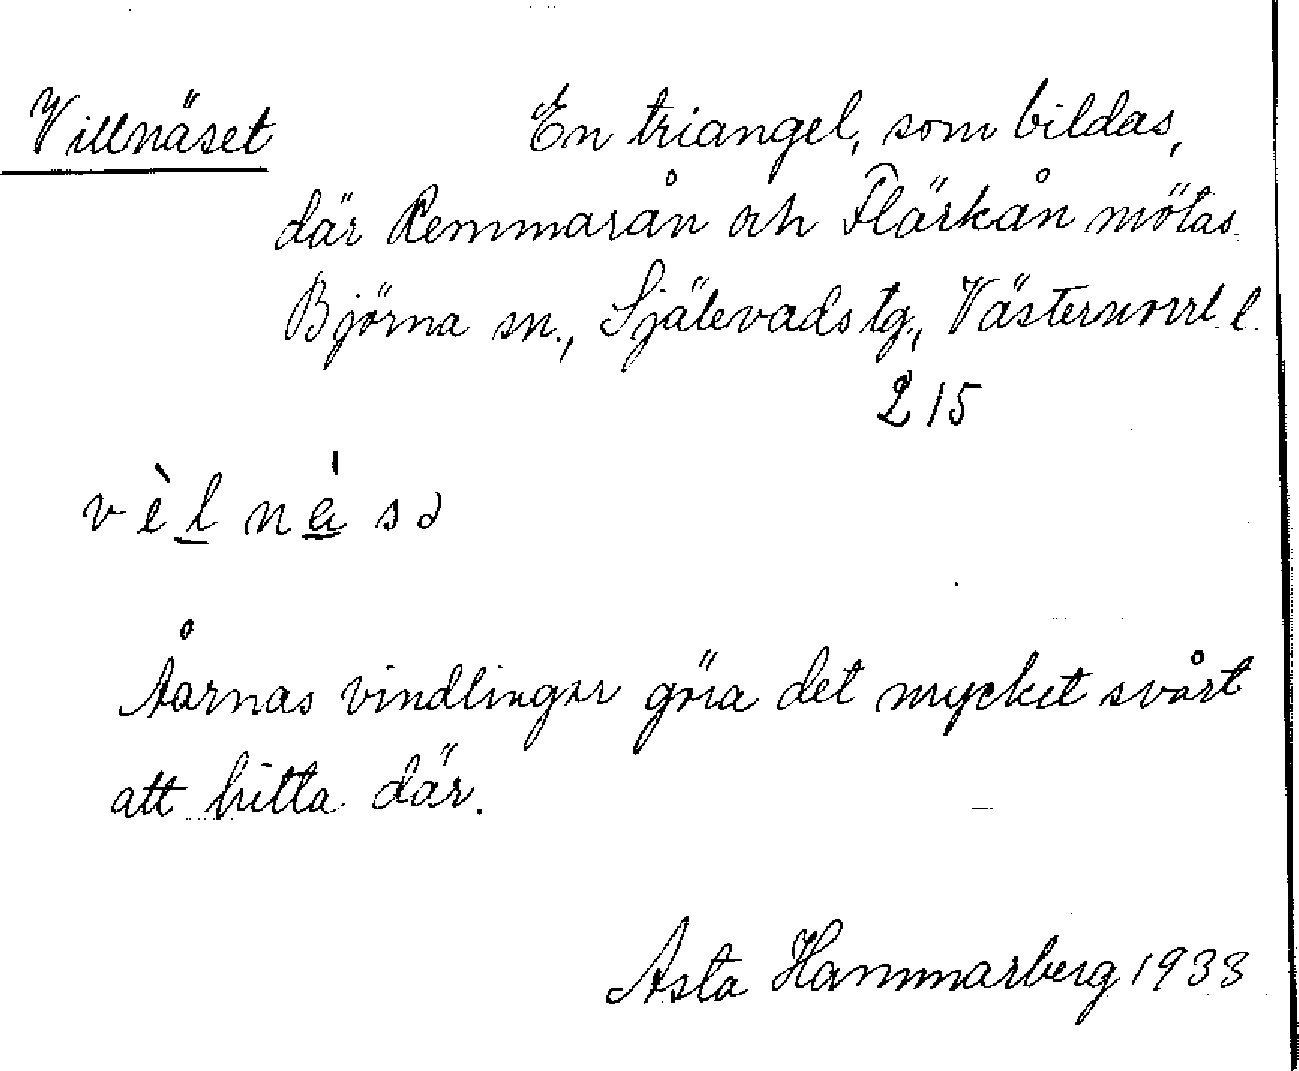 Villnäset En triangel, som bildas,
där Remmarån och Flärkån mötas.
Björna sn., Själevads tg., Västernorrl. l.
215
v è l n á sə
Åarnas vindlingar göra det mycket svårt
att hitta där.
Asta Hammarberg 1933